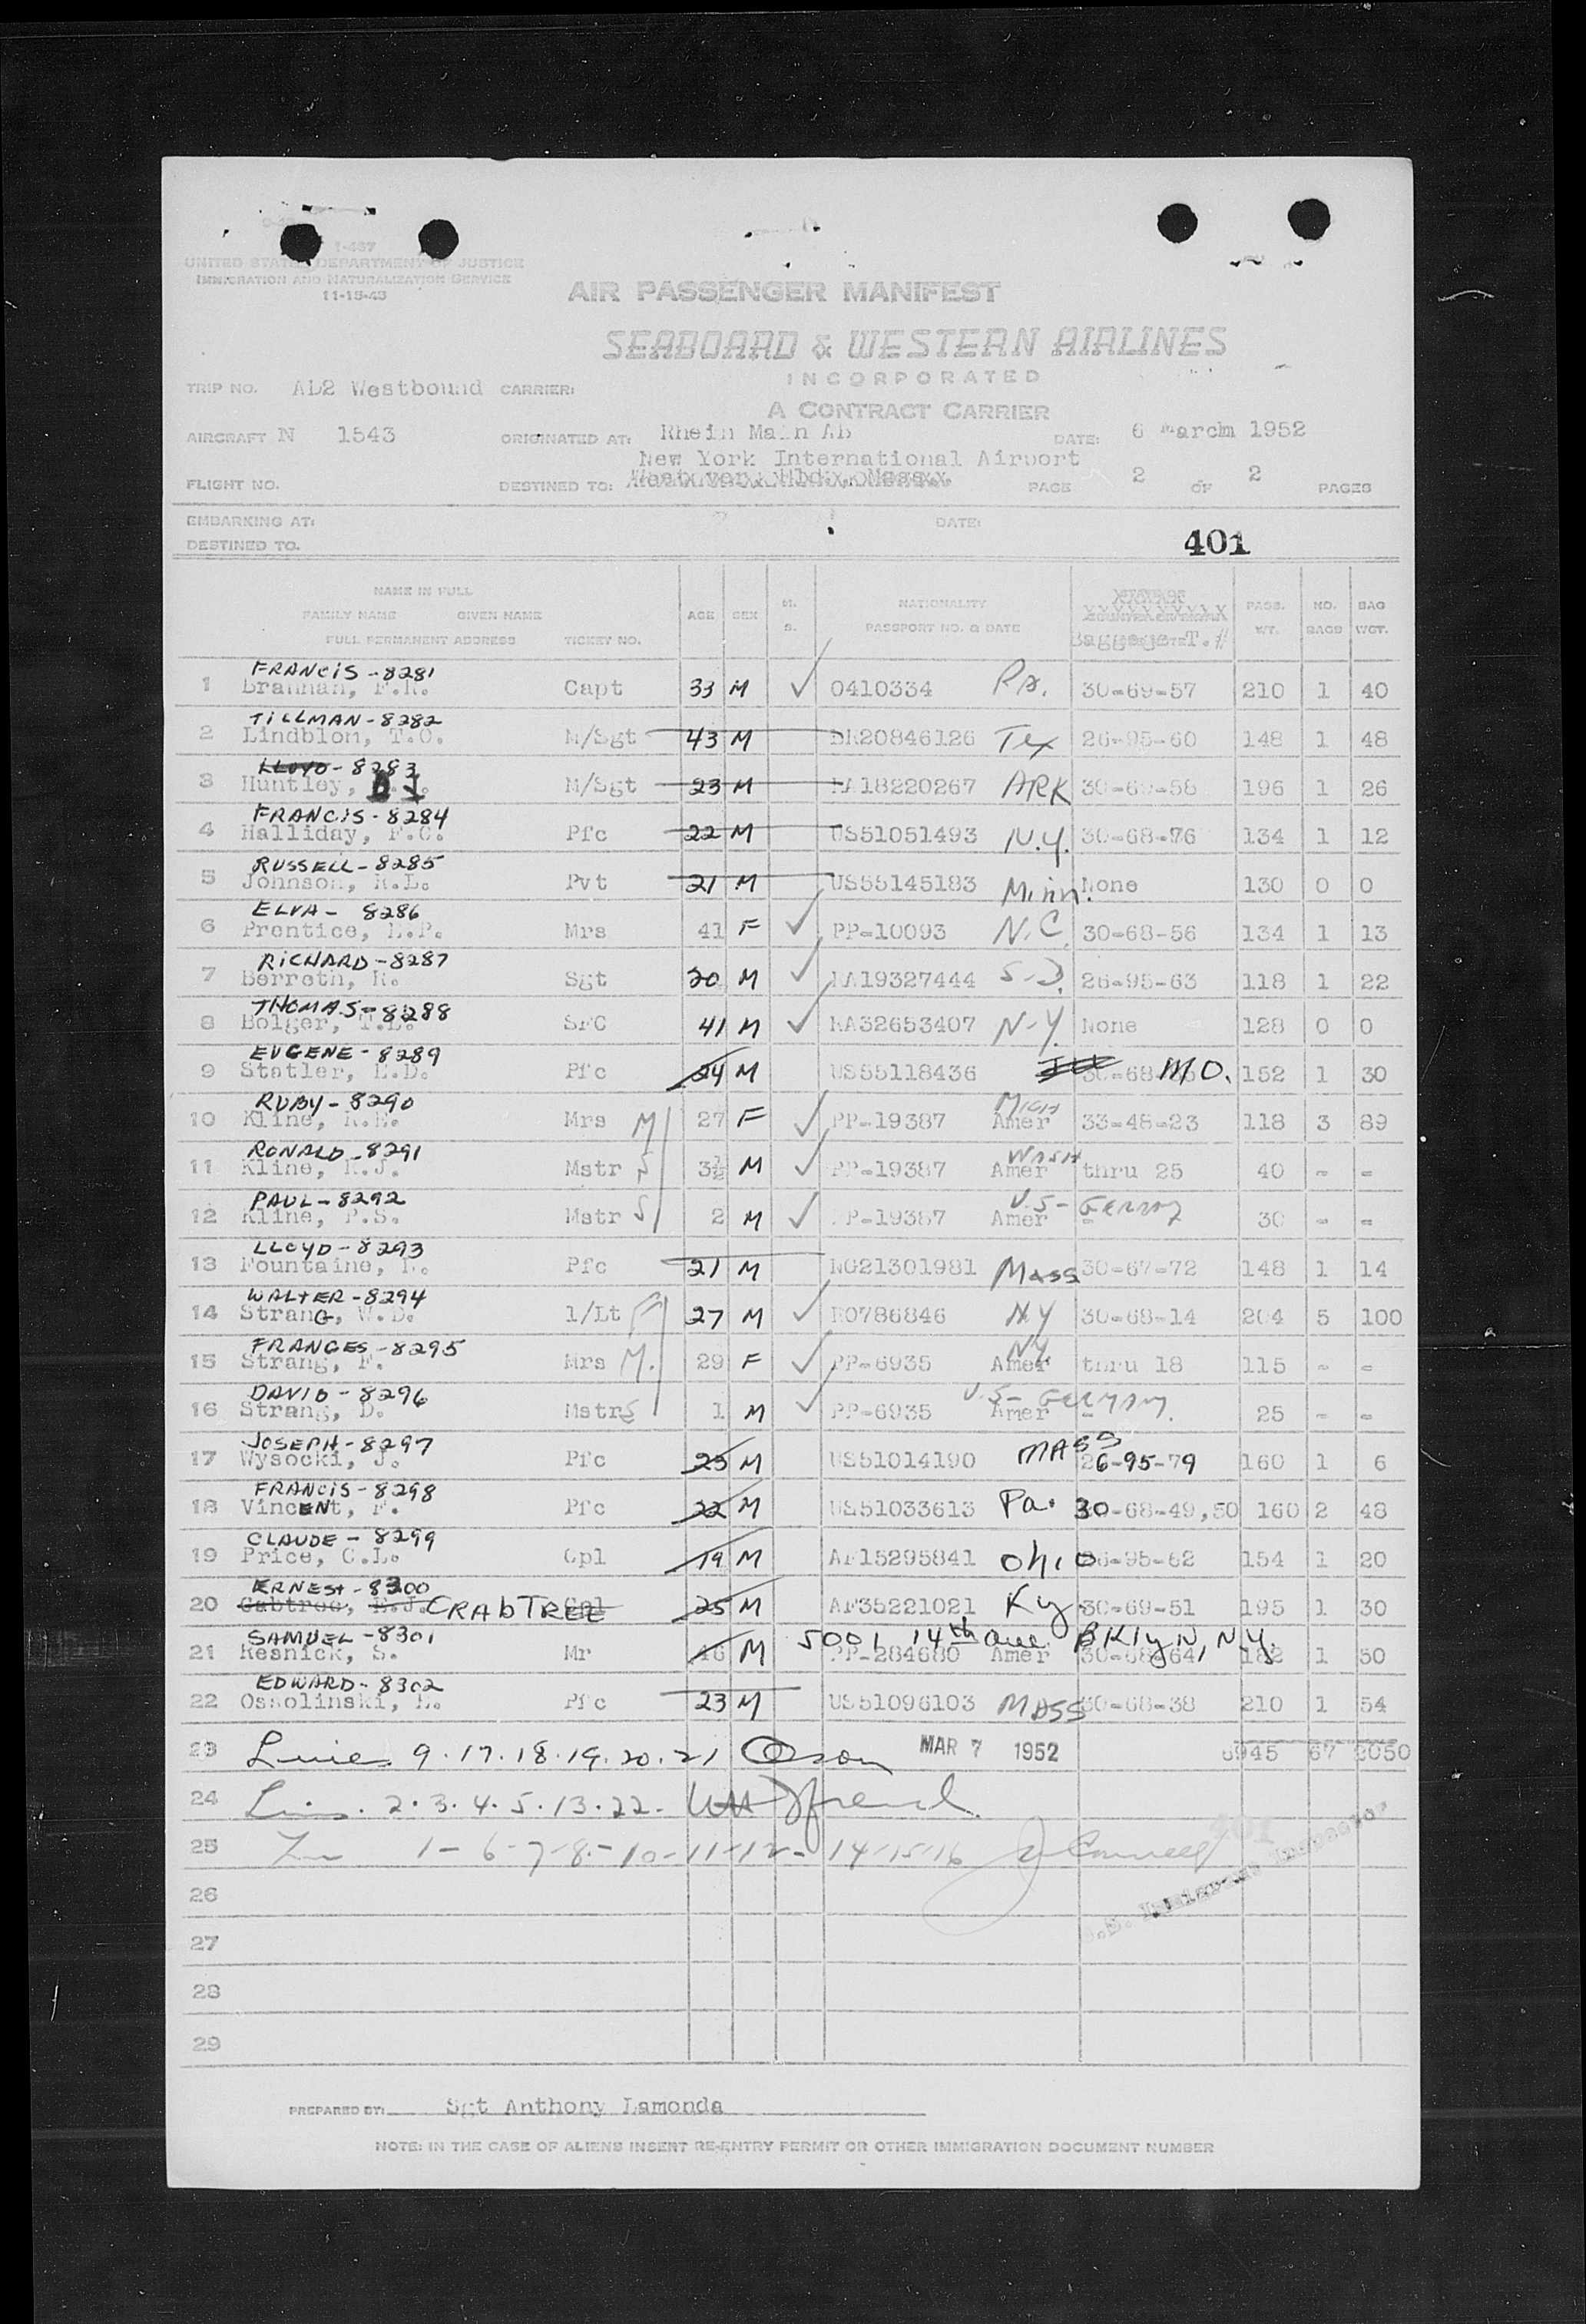 I-467
UNITED STATES DEPARTMENT OF JUSTICE
IMMIGRATION AND NATURALIZATION SERVICE
11-15-43
AIR PASSENGER MANIFEST
SEABOARD & WESTERN AIRLINES
INCORPORATED
A CONTRACT CARRIER
TRIP NO. AL2 Westbound CARRIER:
AIRCRAFT N 1543 ORIGINATED AT: Rhein Main Ab DATE: 6 March 1952
New York International Airport
FLIGHT NO. DESTINED TO: PAGE 2 OF 2 PAGES
EMBARKING AT: DATE:
DESTINED TO. 401
NAME IN FULL
FAMILY NAME GIVEN NAME
FULL PERMANENT ADDRESS TICKET NO. AGE SEX M. S. NATIONALITY PASSPORT NO. & DATE Baggage T.# PASS. WT. NO. BAGS BAG WGT.
FRANCIS-8281
1 Brannan, F.R. Capt 33 M 0410334 Pa. 30-69-57 210 1 40
TILLMAN-8282
2 Lindblom, T.O. M/Sgt 43 M 20846126 Tex 26-95-60 148 1 48
LLOYD-8283
3 Huntley, D J. M/Sgt 23 M RA18220267 ARK 30-69-58 196 1 26
FRANCIS-8284
4 Halliday, F.C. Pfc 22 M US51051493 N.Y. 30-68-76 134 1 12
RUSSELL-8285
5 Johnson, R.L. Pvt 21 M US55145183 Minn. None 130 0 0
ELVA- 8286
6 Prentice, E.P. Mrs 41 F PP-10093 N.C. 30-68-56 134 1 13
RICHARD-8287
7 Berreth, R. Sgt 20 M RA19327444 S-D. 26-95-63 118 1 22
THOMAS-8288
8 Bolger, T.L. SFC 41 M RA32653407 N-Y. None 128 0 0
EUGENE-8289
9 Statler, E.D. Pfc 24 M US55118436 MO. 152 1 30
RUBY-8290
10 Kline, R.E. Mrs M 27 F PP-19387 MICH Amer 33-48-23 118 3 89
RONALD-8291
11 Kline, R.J. Mstr S 3½ M PP-19387 WASH Amer thru 25 40 - -
PAUL-8292
12 Kline, P.S. Mstr S 2 M PP-19387 U.S-GERMNY Amer - 30 - -
LLOYD-8293
13 Fountaine, L. Pfc 21 M NG21301981 MASS 30-67-72 148 1 14
WALTER-8294
14 StranG, W.D. 1/Lt F 27 M RO786846 NY 30-68-14 204 5 100
FRANCES-8295
15 Strang, F. Mrs M. 29 F PP-6935 NY. Amer thru 18 115 - -
DAVID-8296
16 Strang, D. Mstr S 1 M PP-6935 U.S-GERMANY. Amer - 25 - -
JOSEPH-8297
17 Wysocki, J. Pfc 25 M US51014190 MASS 26-95-79 160 1 6
FRANCIS-8298
18 VincENt, F. Pfc 22 M US51033613 Pa. 30-68-49,50 160 2 48
CLAUDE-8299
19 Price, C.L. Cpl 19 M AF15295841 Ohio 26-95-62 154 1 20
ERNEST-8300
20 Cabtree, E.J. CRABTREE Cpl 25 M AF35221021 Ky 30-69-51 195 1 30
SAMUEL-8301 5001 14th ave BKlyN, N.Y.
21 Resnick, S. Mr 46 M PP-284680 Amer 30-68-64 182 1 50
EDWARD-8302
22 Ossolinski, E. Pfc 23 M US51096103 MASS 30-68-38 210 1 54
23 Lines 9.17.18.19.20.21 Olson MAR 7 1952 6945 67 2050
24 Lines. 2.3.4.5.13.22.
25 1-6-7-8-10-11-12-14-15-16
401
U.S. Immigrant Inspector
26
27
28
29
PREPARED BY: Sgt Anthony Lamonda
NOTE: IN THE CASE OF ALIENS INSERT RE-ENTRY PERMIT OR OTHER IMMIGRATION DOCUMENT NUMBER